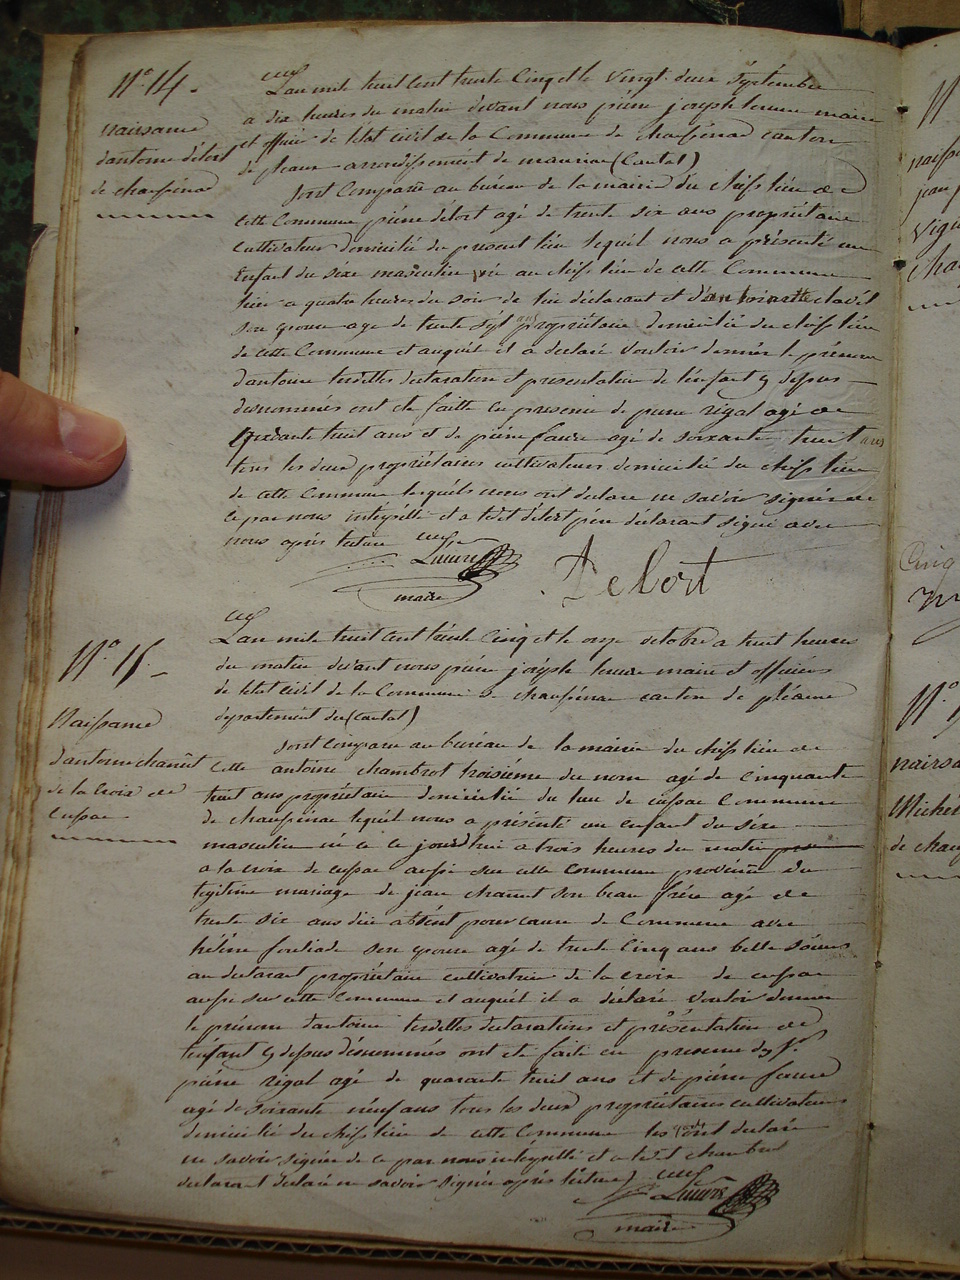 N° 14.
naissance
d'antoine délort
de chaussénac
L'an mil huit cent trente Cinq et le vingt deux Séptembre
a dix heures du matin devant nous piérre joséph maire
et officier de létat civil de la Commune de chaussénac canton
de pleaux arrondissement de mauriac (Cantal)
Sont Comparu au buréau de la mairie du chéif lieu de
cette Commune piérre délort agé de trente six ans propriétaire
cultivateur domicilié du présent lieu lequél nous a présenté un
Enfant du séxe masculin née au chéif lieu de cette Commune
hier a quatre heures du soir de lui déclarant et d'antoinette clavél
son épouse agé de trente sépt ans propriétaire domicilié du chéif lieu
de cette Commune et auquél il a déclaré vouloir donnér le prénom
d'antoine lesdittes déclaration et présentation de l'enfant y dessus
desnommés ont été faitte en présence de pierre rigal agé de
quarante huit ans et de piérre faure agé de soixante huit ans
tous les deux propriétaires cultivateurs domicilié du chéif lieu
de cette Commune lesquéls nous ont déclaré ne savoir signér de
ce par nous intérpéllé et a ledit délort pére déclarant signé avec
nous aprés lécture
Delort
maire
N° 15.
Naissance
d'antoine chanut
de la Croix de
cussac
L'an mil huit cent trente Cinq et le onze octobre a huit heures
du matin devant nous piérre joséph maire et officier
de létat civil de la Commune de chaussénac canton de pléaux
département du (Cantal)
Sont Comparu au buréau de la mairie du chéif lieu de
cette antoine chambrot troisiéme du nom agé de cinquante
huit ans propriétaire domicilié du lieu de cussac Commune
de chaussénac lequél nous a présenté un enfant du séxe
masculin né a ce jourd'hui a trois heures du matin
a la croix de cussac aussi sur cette commune provénu du
légitime mariage de jean chanut son beau frére agé de
trente six ans absént pour cause de Commerce avec
héléne fouliade son épouse agé de trente Cinq ans belle sœur
au déclarant propriétaire cultivatrice de la croix de cussac
aussi sur cette Commune et auquél il a déclaré vouloir donner
le prénom d'antoine lesdittes déclarations et présentation de
l'enfant y dessus désnommés ont été faite en présence
piérre rigal agé de quarante huit ans et de piérre faure
agé de soixante néuf ans tous les deux propriétaires cultivateurs
domicilié du chéif lieu de cette Commune les ont déclaré
ne savoir signér de ce par nous intérpéllé et a ledit chambrot
déclarant déclaré ne savoir signér aprés lécture
maire